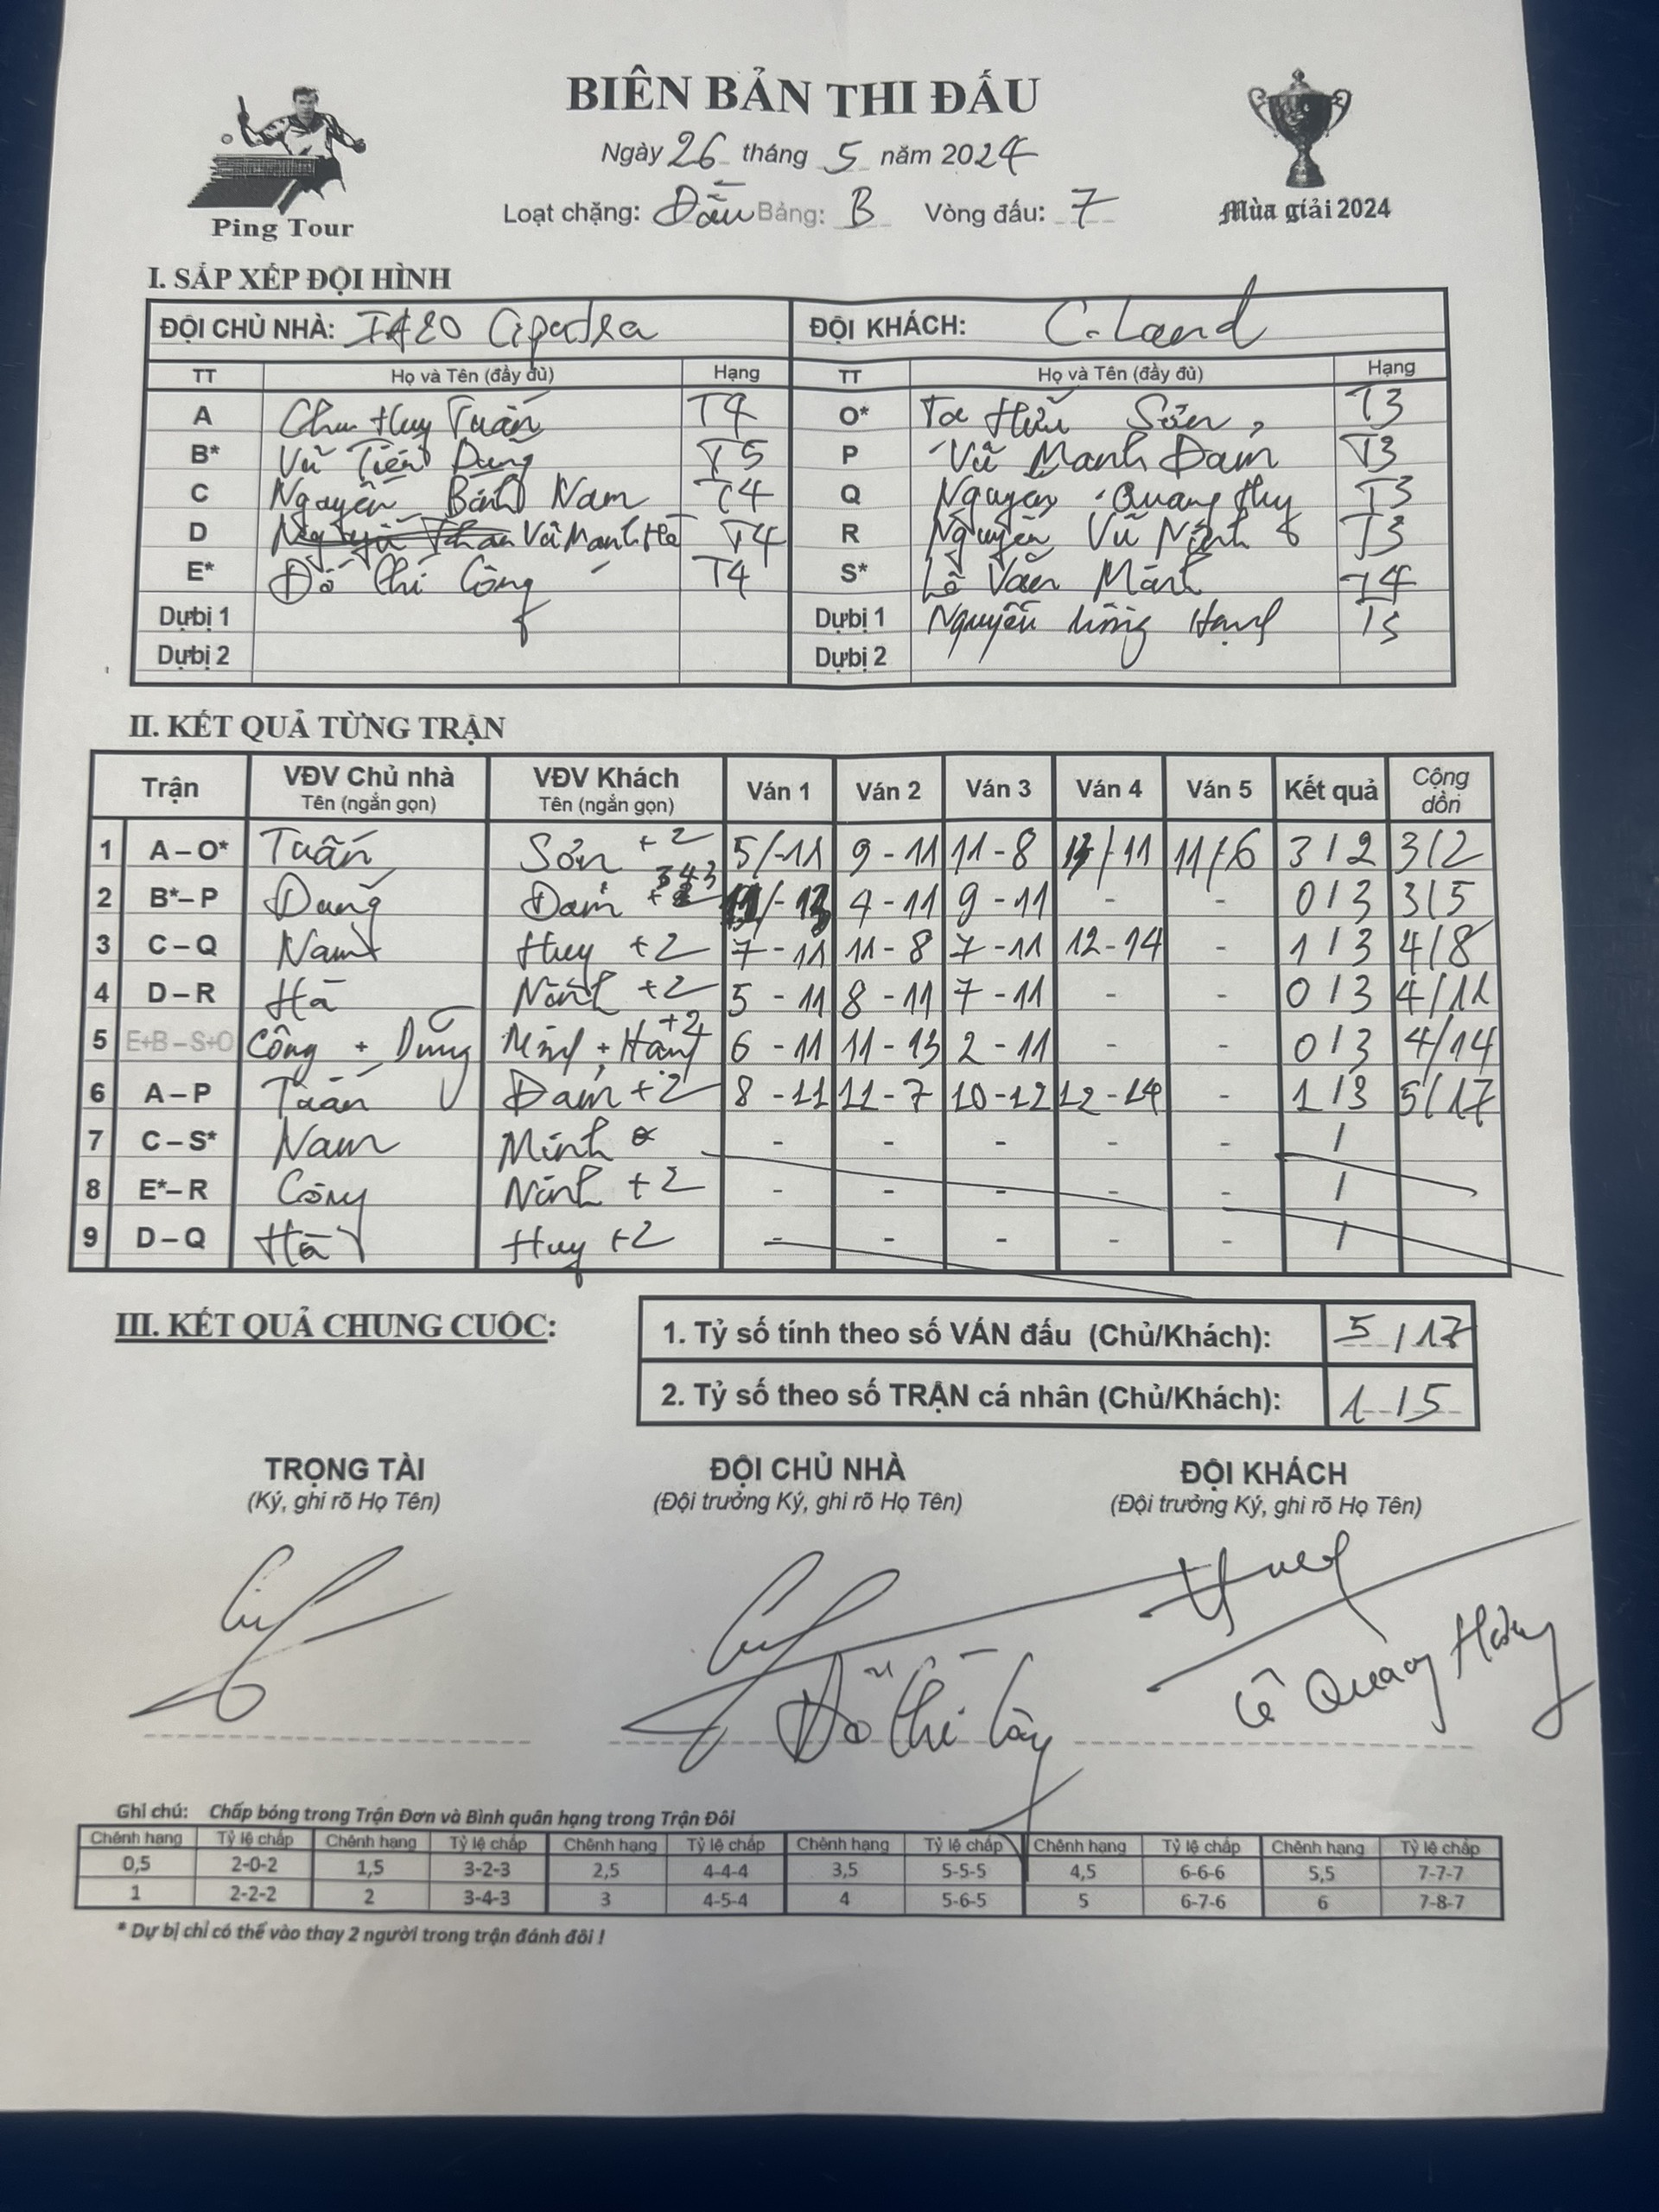 BIÊN BẢN THI ĐẤU
Ngày 26 tháng 5 năm 2024
Loạt chặng: Đầu Bảng: B Vòng đấu: 7
Ping Tour
Mùa giải 2024
I. SẮP XẾP ĐỘI HÌNH
ĐỘI CHỦ NHÀ: ĐỘI KHÁCH: C.Land
TT Họ và Tên (đầy đủ) Hạng TT Họ và Tên (đầy đủ) Hạng
A Chu Huy Tuấn T4 O* Tạ Hữu Sơn T3
B* Vũ Tiến Dũng T5 P Vũ Mạnh Đam T3
C Nguyễn Bành Nam T4 Q Nguyen Quang Huy T3
D Vũ Mạnh Hà T4 R Nguyễn Vũ Ninh T3
E* Đỗ Chí Công T4 S* Lê Văn Minh T4
Dựbị 1 Dựbị 1 Nguyễn Hạnh T5
Dựbị 2 Dựbị 2
II. KẾT QUẢ TỪNG TRẬN
Trận VĐV Chủ nhà Tên (ngắn gọn) VĐV Khách Tên (ngắn gọn) Ván 1 Ván 2 Ván 3 Ván 4 Ván 5 Kết quả Cộng dồn
1 A – O* Tuấn Sơn +2 5/-11 9 - 11 11 - 8 13/-11 11/-6 3 / 2 3/2
2 B*– P Dũng Đam 343 4 - 11 9 - 11 - - 0 / 3 3/5
3 C – Q Nam Huy +2 7 - 11 11 - 8 7 - 11 12 - 14 - 1 / 3 4/8
4 D – R Hà Ninh +2 5 - 11 8 - 11 7 - 11 - - 0 / 3 4/11
5 E+B – S+O Công + Dũng Minh + Hạnh +2 6 - 11 11 - 13 2 - 11 - - 0 / 3 4/14
6 A – P Tuấn Đam +2 8 - 11 11 - 7 10 - 12 12 - 14 - 1 / 3 5/17
7 C – S* Nam Minh - - - - - /
8 E*– R Công Ninh +2 - - - - - /
9 D – Q Hà Huy +2 - - - - - /
III. KẾT QUẢ CHUNG CUỘC:
1. Tỷ số tính theo số VÁN đấu (Chủ/Khách): 5 / 17
2. Tỷ số theo số TRẬN cá nhân (Chủ/Khách): 1 / 5
TRỌNG TÀI ĐỘI CHỦ NHÀ ĐỘI KHÁCH
(Ký, ghi rõ Họ Tên) (Đội trưởng Ký, ghi rõ Họ Tên) (Đội trưởng Ký, ghi rõ Họ Tên)
Đỗ Chí Công Lê Quang Hưng
Ghi chú: Chấp bóng trong Trận Đơn và Bình quân hạng trong Trận Đôi
Chênh hạng Tỷ lệ chấp Chênh hạng Tỷ lệ chấp Chênh hạng Tỷ lệ chấp Chênh hạng Tỷ lệ chấp Chênh hạng Tỷ lệ chấp Chênh hạng Tỷ lệ chấp
0,5 2-0-2 1,5 3-2-3 2,5 4-4-4 3,5 5-5-5 4,5 6-6-6 5,5 7-7-7
1 2-2-2 2 3-4-3 3 4-5-4 4 5-6-5 5 6-7-6 6 7-8-7
* Dự bị chỉ có thể vào thay 2 người trong trận đánh đôi !